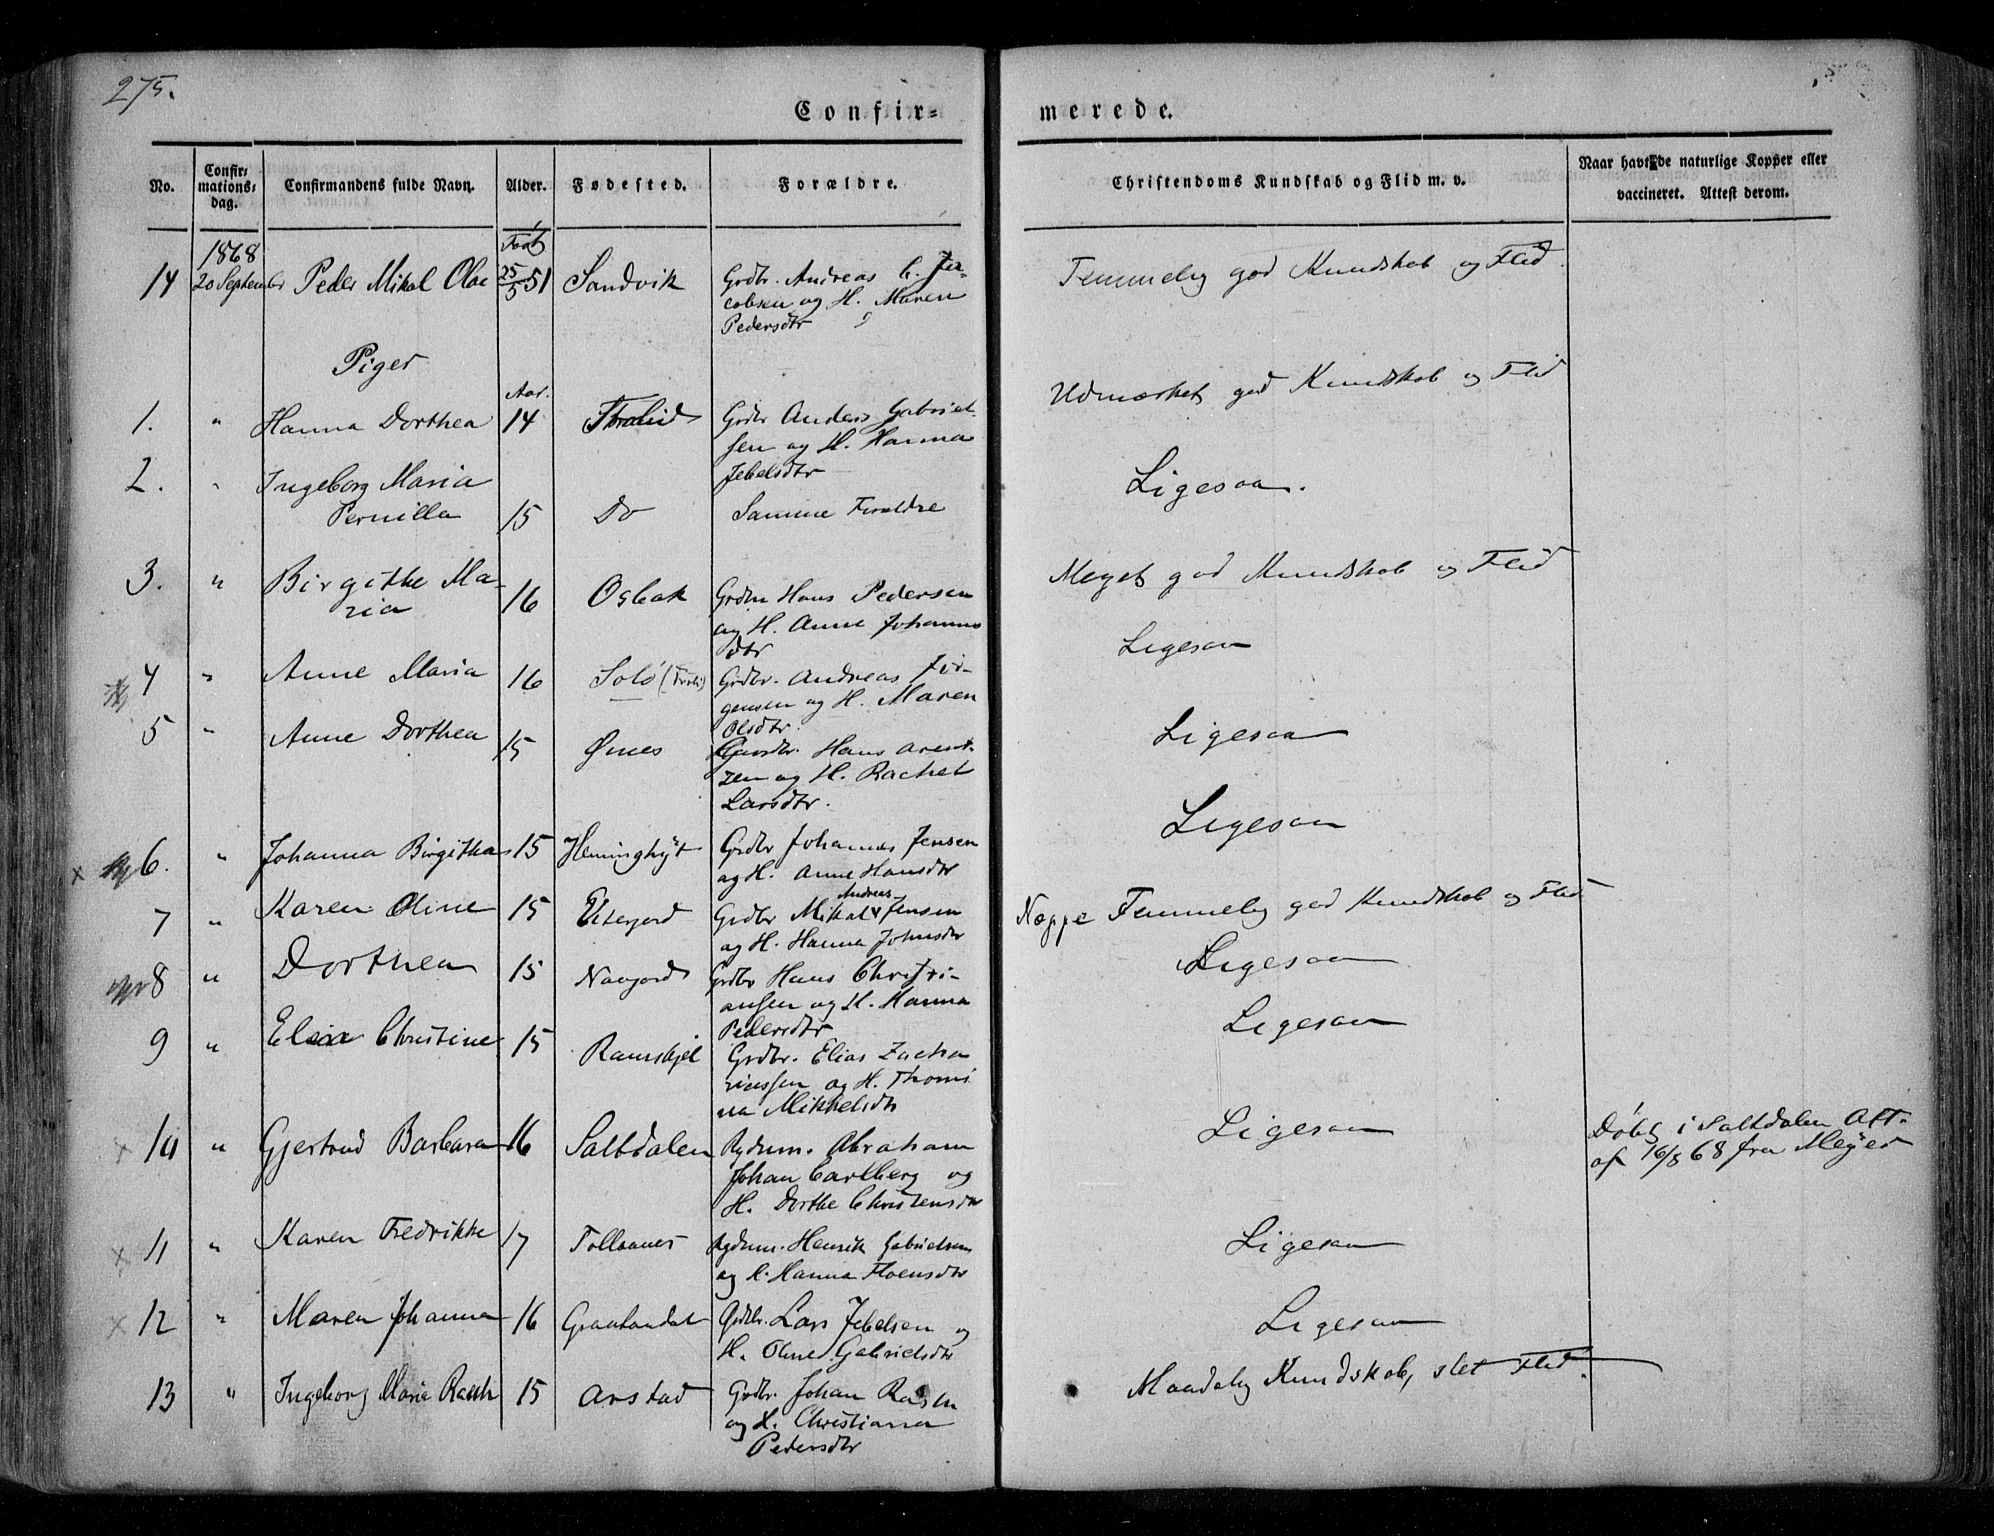 275.
Confir=
merede.
No.
Confir=
mations=
dag.
Confirmandens fulde Navn.
Alder.
Fødested.
Forældre.
Christendoms Kundskab og Flid m. v.
Naar havt de naturlige Kopper eller
vaccineret. Attest derom.
1868
Født
14 20 September Peder Mikal Olai 25/5 51 Sandvik Grdbr. Andreas C. Ja-
cobsen og H. Maren
Pedersdtr
Temmelig god Kundskab og Flid.
Piger
Aar.
1. " Hanna Dorthea 14 Grdbr Anders Gabriel-
sen og H. Hanna
Jebelsdtr
Udmærket god Kundskab og Flid
2. " Ingeborg Maria
Pernilla 15 Do Samme Foraldre
Ligesaa.
3. " Birgithe Ma-
ria 16 Osbak Grdbr Hans Pedersen
og H. Anne Johannes
dtr
Meget god Kundskab og Flid
4 " Anne Maria 16 Grdbr. Andreas Jør-
gensen og H. Maren
Olsdtr
Ligesaa
5 " Anne Dorthea 15 Ønes Gaardbr. Hans Arent-
zen og H. Rachel
Larsdtr.
Ligesaa
x 6. " Johanna Birgitha 15 Heminghyt Grdbr Johannes Jensen
og H. Anne Hansdtr
Ligesaa
7 " Karen Oline 15 Grdbr Mikal Andreas Jensen
og H. Hanna Johnsdtr
Næppe Temmelig god Kundskab og Flid
8 " Dorthea 15 Navjord Grdbr Hans Christi-
ansen og H. Hanna
Pedersdtr
Ligesaa
9 " Elen Christine 15 Ramskjel Grdbr. Elias Zacha
riassen og H. Thomi
na Mikkelsdtr
Ligesaa
x 10 " Gjertrud Barbara 16 Saltdalen Rydnm. Abraham
Johan Carlberg og
H. Dorthe Christensdtr
Ligesaa
Døbt i Saltdalen Att.
af 16/8 68 fra Meÿer
x 11 " Karen Fredrikke 17 Tollaanes Rydnm. Henrik Gabrielsen
og H. Hanna
Ligesaa
x 12 " Maren Johanna 16 Graatandal Grdbr. Lars Jebelsen og
H. Oline Gabrielsdtr
Ligesaa
13 " Ingeborg Maria 15 Arstad Grdbr. Johan Rasen
og H. Christianna
Pedersdtr
Maadelig Kundskab, slet Flid.